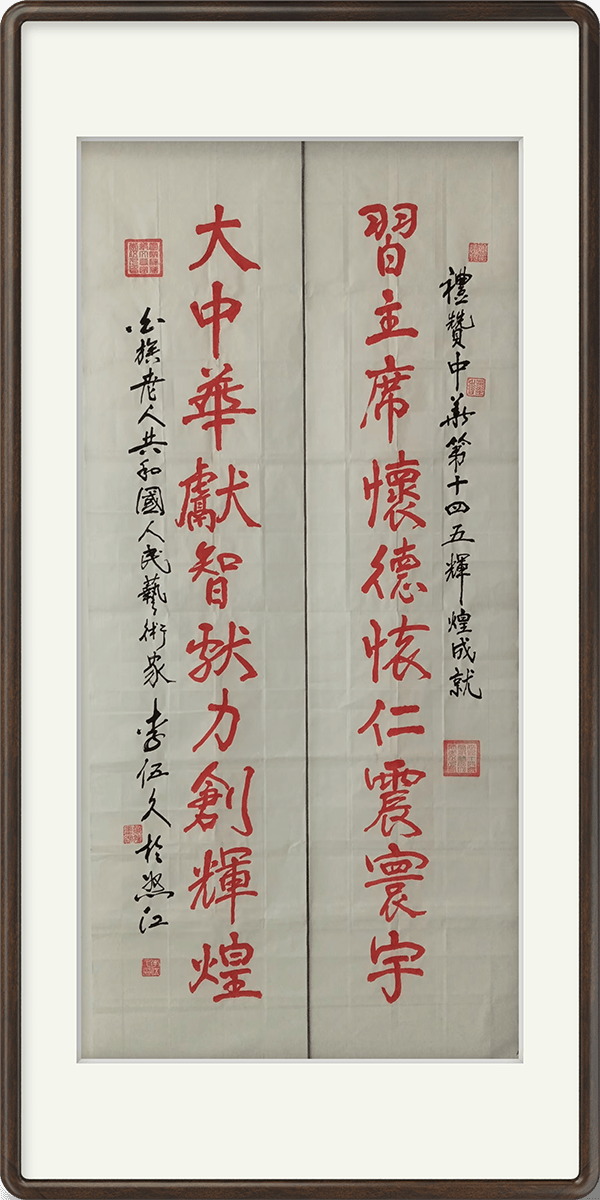 禮贊中華第十四五輝煌成就
習主席懷德懐仁震寰宇
大中華獻智献力創輝煌
白族老人共和國人民藝術家 李伍久於怒江